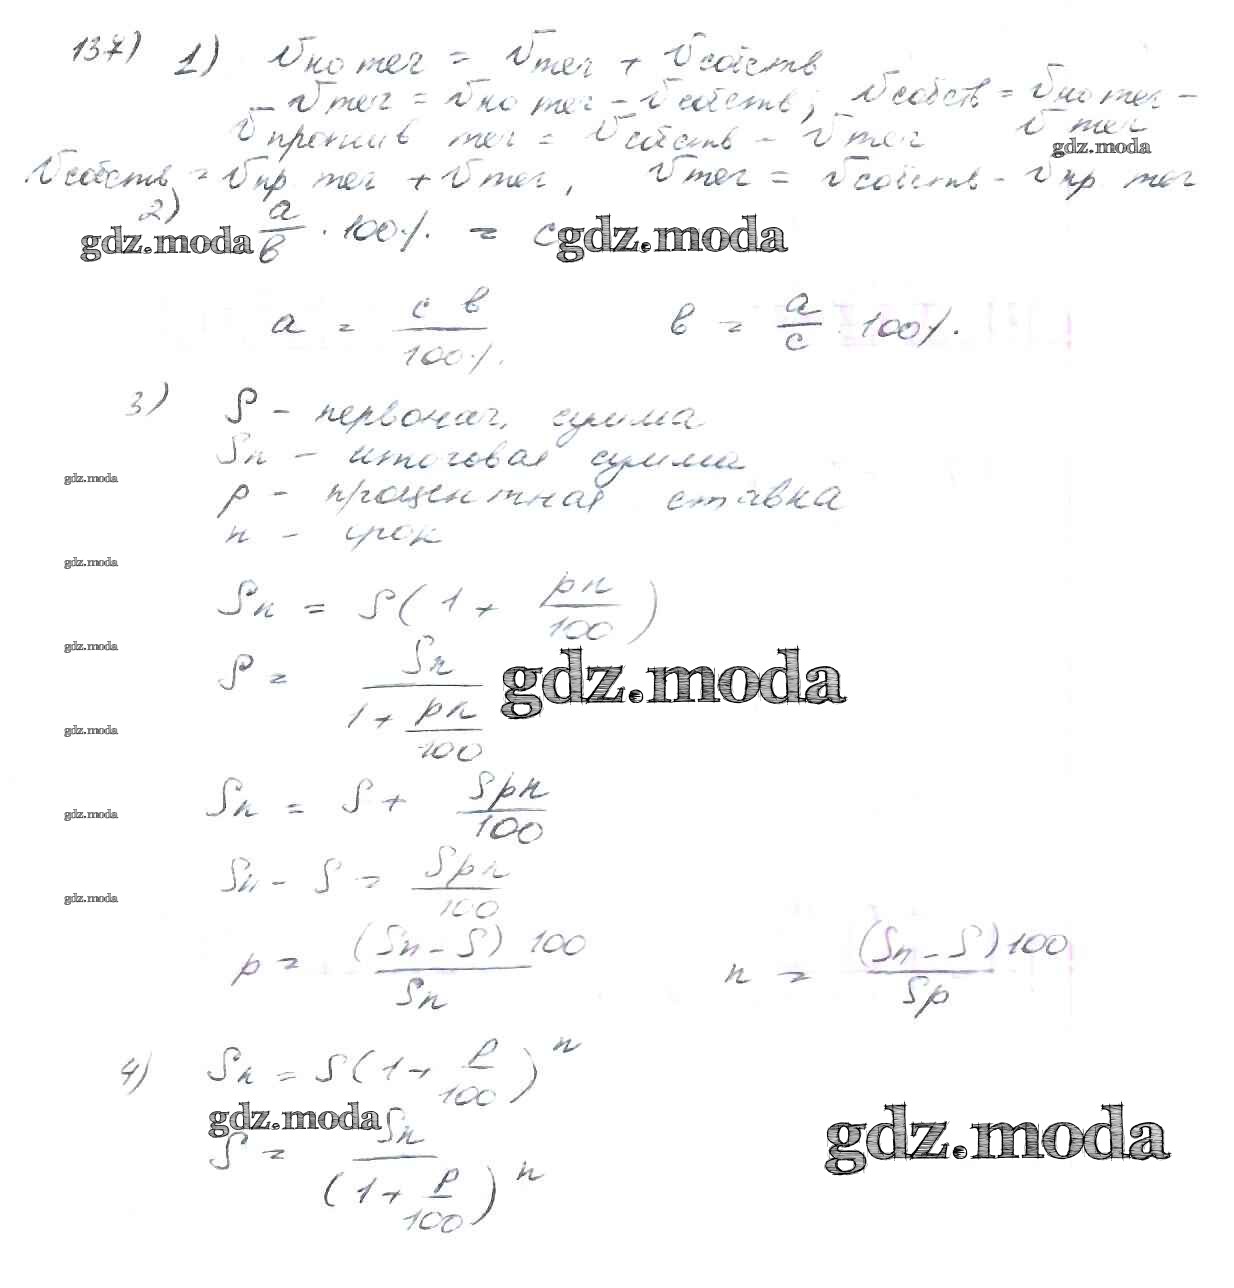 137) 1) Vпо теч = Vтеч + Vсобств
– Vтеч = Vпо теч – Vсобств; Vсобств = Vпо теч –
Vпротив теч = Vсобств – Vтеч Vтеч
gdz.moda
Vсобств = Vпр теч + Vтеч, Vтеч = Vсобств – Vпр теч
2) a/в · 100% = c
gdz.moda gdz.moda
a = c в / 100%. в = a/c 100%.
3) S – первонач. сумма
Sn – итоговая сумма
gdz.moda
p – процентная ставка
n – срок
gdz.moda
Sn = S(1 + pn/100)
gdz.moda
S = Sn / (1 + pn/100)
gdz.moda
gdz.moda
Sn = S + Spn/100
gdz.moda
Sn – S = Spn/100
gdz.moda
p = (Sn – S) 100 / Sn n = (Sn – S) 100 / Sp
4) Sn = S(1 + p/100)^n
gdz.moda
gdz.moda
S = Sn / (1 + p/100)^n